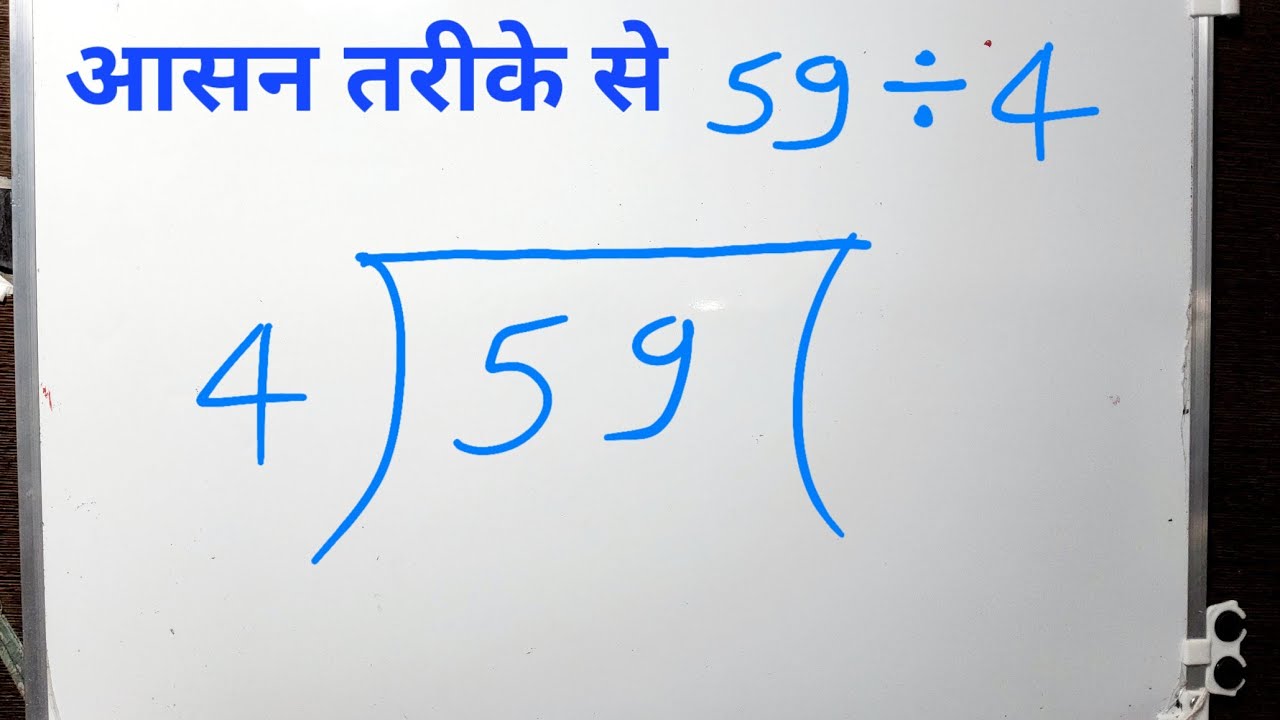 आसन तरीके से 59÷4
4)59(